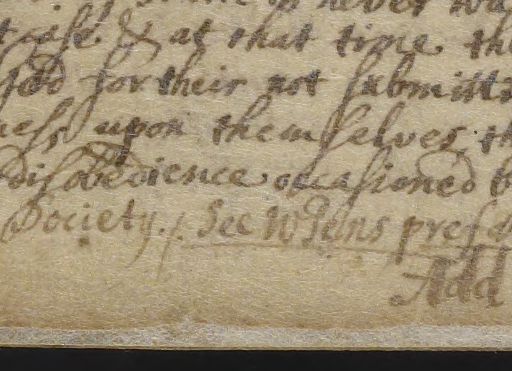 never
at that time the
God for their not submitti
ness upon themselves, th
disobedience occasioned b
Society. / See W Pens pref
Add